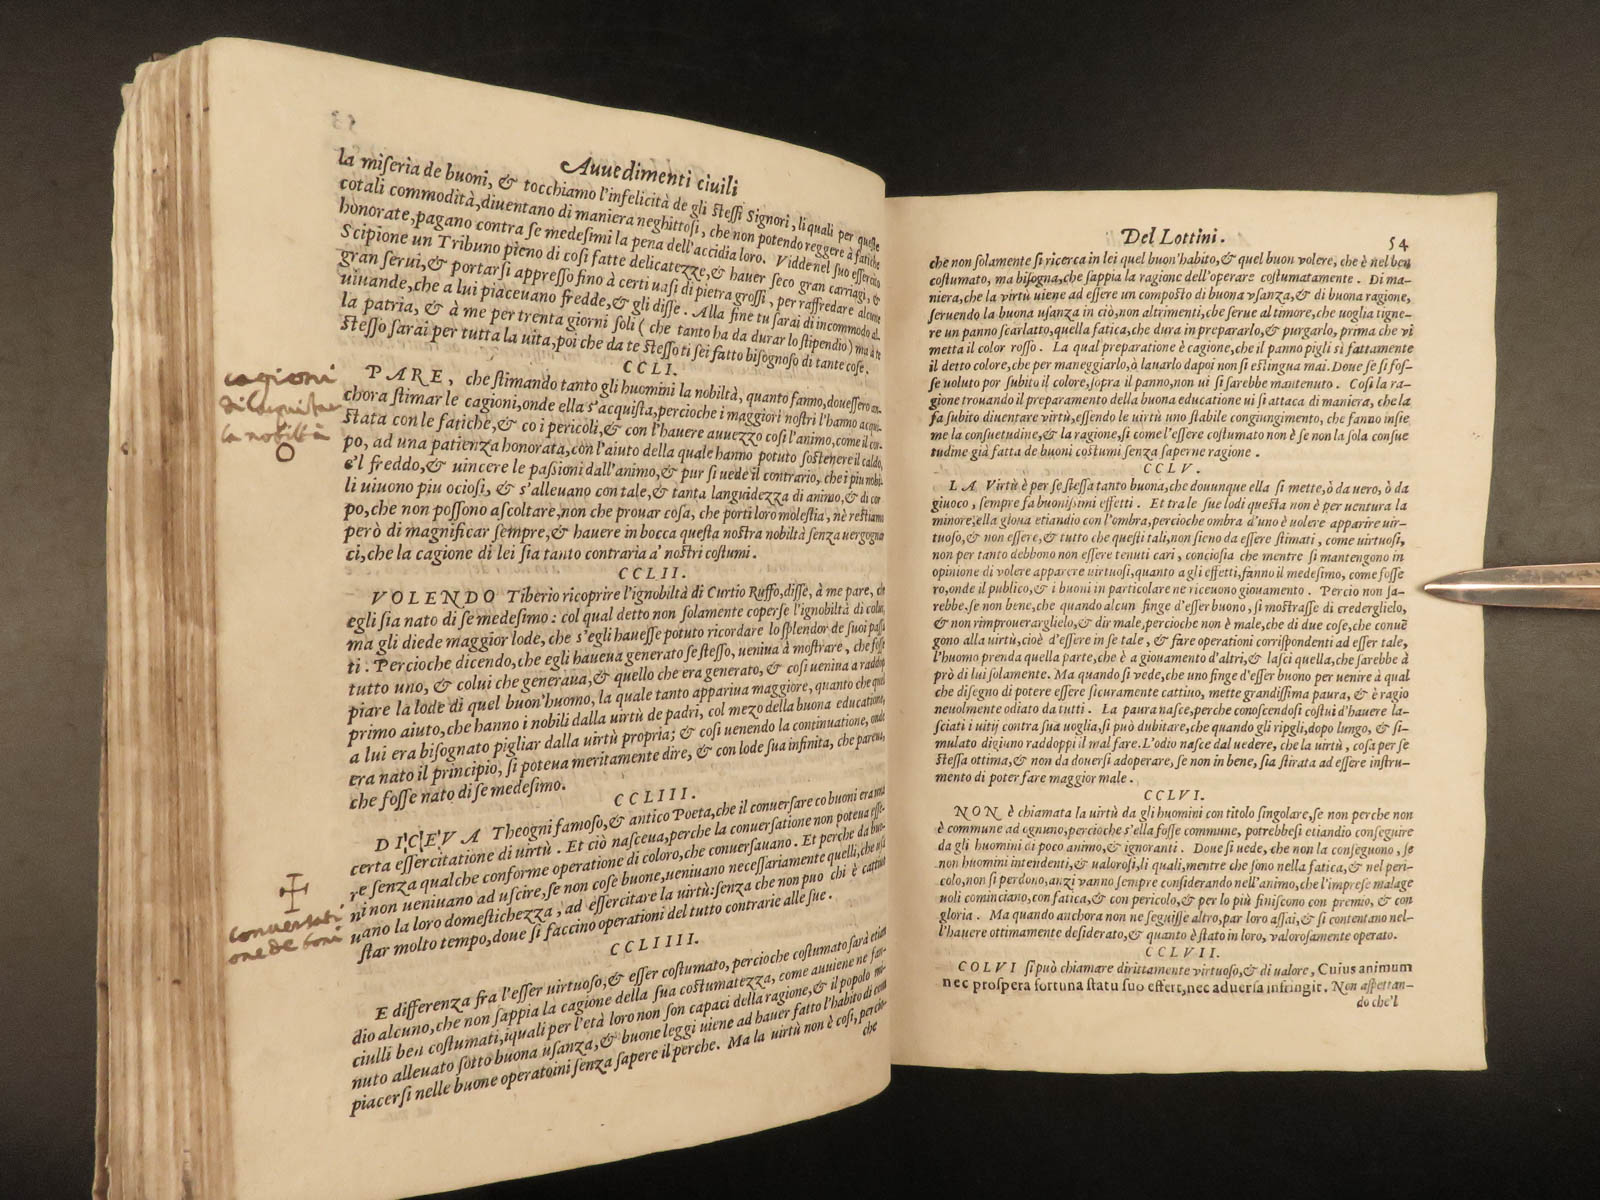 Auuedimenti ciuili
la miſeria de buoni, & tocchiamo l'infelicità de gli ſteſſi Signori, li quali per queſte
cotali commodità, diuentano di maniera neghittoſi, che non potendo reggere à fatiche
honorate, pagano contra ſe medeſimi la pena dell'accidia loro. Vidde nel ſuo eſſercito
Scipione un Tribuno pieno di coſi fatte delicatezze, & hauer ſeco gran carriagi, &
gran ſerui, & portarſi appreſſo fino à certi uaſi di pietra groſſi, per raffredare alcune
uiuande, che a lui piaceuano fredde, & gli diſſe. Alla fine tu ſarai di incommodo al
la patria, & à me per trenta giorni ſoli (che tanto ha da durar lo ſtipendio) ma à te
ſteſſo ſarai per tutta la uita, poi che da te ſteſſo ti ſei fatto biſognoſo di tante coſe.
CCLI.
PARE, che ſtimando tanto gli huomini la nobiltà, quanto fanno, doueſſero an-
chora ſtimar le cagioni, onde ella s'acquiſta, percioche i maggiori noſtri l'hanno acqui-
ſtata con le fatiche, & co i pericoli, & con l'hauere auuezzo coſi l'animo, come il cor-
po, ad una patienza honorata, con l'aiuto della quale hanno potuto ſoſtenere il caldo,
e'l freddo, & uincere le paſſioni dall'animo, & pur ſi uede il contrario, che i piu nobi-
li uiuono piu ocioſi, & s'alleuano con tale, & tanta languidezza di animo, & di cor-
po, che non poſſono aſcoltare, non che prouar coſa, che porti loro moleſtia, nè reſtiamo
però di magnificar ſempre, & hauere in bocca queſta noſtra nobiltà ſenza uergogna
ci, che la cagione di lei ſia tanto contraria a' noſtri coſtumi.
CCLII.
VOLENDO Tiberio ricoprire l'ignobiltà di Curtio Ruffo, diſſe, à me pare, che
egli ſia nato di ſe medeſimo: col qual detto non ſolamente coperſe l'ignobiltà di colui,
ma gli diede maggior lode, che s'egli haueſſe potuto ricordare lo ſplendor de ſuoi paſſa
ti: Percioche dicendo, che egli haueua generato ſe ſteſſo, ueniua à moſtrare, che foſſe
tutto uno, & colui che generaua, & quello che era generato, & coſi ueniua a raddop
piare la lode di quel buon'huomo, la quale tanto appariua maggiore, quanto che quel
primo aiuto, che hanno i nobili dalla uirtù de padri, col mezo della buona educatione,
a lui era biſognato pigliar dalla uirtù propria; & coſi uenendo la continuatione, onde
era nato il principio, ſi poteua meritamente dire, & con lode ſua infinita, che pareua,
che foſſe nato di ſe medeſimo.
CCLIII.
DICEVA Theogni famoſo, & antico Poeta, che il conuerſare co buoni era una
certa eſſercitatione di uirtù. Et ciò naſceua, perche la conuerſatione non poteua eſſe-
re ſenza qualche conforme operatione di coloro, che conuerſauano. Et perche da buo-
ni non ueniuano ad uſcire, ſe non coſe buone, ueniuano neceſſariamente quelli, che uſa
uano la loro domeſtichezza, ad eſſercitare la uirtù: ſenza che non può chi è cattiuo
ſtar molto tempo, doue ſi faccino operationi del tutto contrarie alle ſue.
CCLIIII.
E differenza fra l'eſſer uirtuoſo, & eſſer coſtumato, percioche coſtumato ſarà etian
dio alcuno, che non ſappia la cagione della ſua coſtumatezza, come auuiene ne fan-
ciulli ben coſtumati, iquali per l'età loro non ſon capaci della ragione, & il popolo mi-
nuto alleuato ſotto buona uſanza, & buone leggi uiene ad hauer fatto l'habito di com
piacerſi nelle buone operatoini ſenza ſapere il perche. Ma la uirtù non è coſi, percio-
che
cagioni
di acquiſtar
la nobiltà
conuerſati
one de boni
Del Lottini.
54
che non ſolamente ſi ricerca in lei quel buon'habito, & quel buon volere, che è nel ben
coſtumato, ma biſogna, che ſappia la ragione dell'operare coſtumatamente. Di ma-
niera, che la virtù uiene ad eſſere un compoſto di buona vſanza, & di buona ragione,
ſeruendo la buona uſanza in ciò, non altrimenti, che ſerue al timore, che uoglia tigne-
re un panno ſcarlatto, quella fatica, che dura in prepararlo, & purgarlo, prima che vi
metta il color roſſo. La qual preparatione è cagione, che il panno pigli sì fattamente
il detto colore, che per maneggiarlo, ò lauarlo dapoi non ſi eſtingua mai. Doue ſe ſi foſ-
ſe uoluto por ſubito il colore, ſopra il panno, non ui ſi ſarebbe mantenuto. Coſi la ra-
gione trouando il preparamento della buona educatione ui ſi attaca di maniera, che la
fa ſubito diuentare virtù, eſſendo le uirtù uno ſtabile congiungimento, che fanno inſie
me la conſuetudine, & la ragione, ſi come l'eſſere coſtumato non è ſe non la ſola conſue
tudine già fatta de buoni coſtumi ſenza ſaperne ragione.
CCLV.
LA Virtù è per ſe ſteſſa tanto buona, che douunque ella ſi mette, ò da uero, ò da
giuoco, ſempre fa buoniſſimi effetti. Et tra le ſue lodi queſta non è per uentura la
minore; ella gioua etiandio con l'ombra, percioche ombra d'uno è uolere apparire uir-
tuoſo, & non eſſere, & tutto che queſti tali, non ſieno da eſſere ſtimati, come uirtuoſi,
non per tanto debbono non eſſere tenuti cari, concioſia che mentre ſi mantengono in
opinione di volere apparere uirtuoſi, quanto a gli effetti, fanno il medeſimo, come foſſe
ro, onde il publico, & i buoni in particolare ne riceuono giouamento. Percio non ſa-
rebbe, ſe non bene, che quando alcun finge d'eſſer buono, ſi moſtraſſe di crederglielo,
& non rimprouerarglielo, & dir male, percioche non è male, che di due coſe, che conuē
gono alla uirtù, cioè d'eſſere in ſe tale, & fare operationi corriſpondenti ad eſſer tale,
l'huomo prenda quella parte, che è a giouamento d'altri, & laſci quella, che ſarebbe à
prò di lui ſolamente. Ma quando ſi vede, che uno finge d'eſſer buono per uenire à qual
che diſegno di potere eſſere ſicuramente cattiuo, mette grandiſſima paura, & è ragio
neuolmente odiato da tutti. La paura naſce, perche conoſcendoſi coſtui d'hauere la-
ſciati i uitij contra ſua uoglia, ſi può dubitare, che quando gli ripigli, dopo lungo, & ſi-
mulato digiuno raddoppi il mal fare. L'odio naſce dal uedere, che la uirtù, coſa per ſe
ſteſſa ottima, & non da douerſi adoperare, ſe non in bene, ſia ſtirata ad eſſere inſtru-
mento di poter fare maggior male.
CCLVI.
NON è chiamata la uirtù da gli huomini con titolo ſingolare, ſe non perche non
è commune ad ognuno, percioche s'ella foſſe commune, potrebbeſi etiandio conſeguire
da gli huomini di poco animo, & ignoranti. Doue ſi uede, che non la conſeguono, ſe
non huomini intendenti, & ualoroſi, li quali, mentre che ſono nella fatica, & nel peri-
colo, non ſi perdono, anzi vanno ſempre conſiderando nell'animo, che l'impreſe malage
uoli cominciano, con fatica, & con pericolo, & per lo più finiſcono con premio, & con
gloria. Ma quando anchora non ne ſeguiſſe altro, par loro aſſai, & ſi contentano nel-
l'hauere ottimamente deſiderato, & quanto è ſtato in loro, valoroſamente operato.
CCLVII.
COLVI ſi può chiamare dirittamente virtuoſo, & di ualore, Cuius animum
nec proſpera fortuna ſtatu ſuo effert, nec aduerſa infringit. Non aſpettan-
do che'l